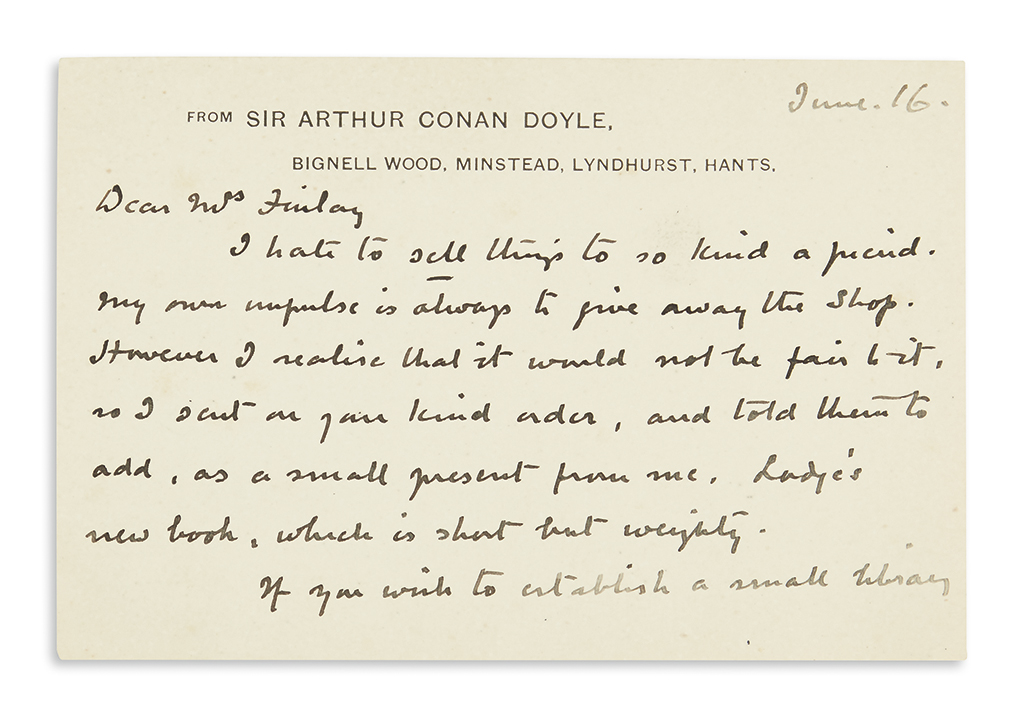 June. 16.
FROM SIR ARTHUR CONAN DOYLE,
BIGNELL WOOD, MINSTEAD, LYNDHURST, HANTS.
Dear Mrs Finlay
I hate to sell things to so kind a friend.
My own impulse is always to give away the Shop.
However I realise that it would not be fair to it,
so I sent on your kind order, and told them to
add, as a small present from me, Lodge's
new book, which is short but weighty.
If you wish to establish a small library